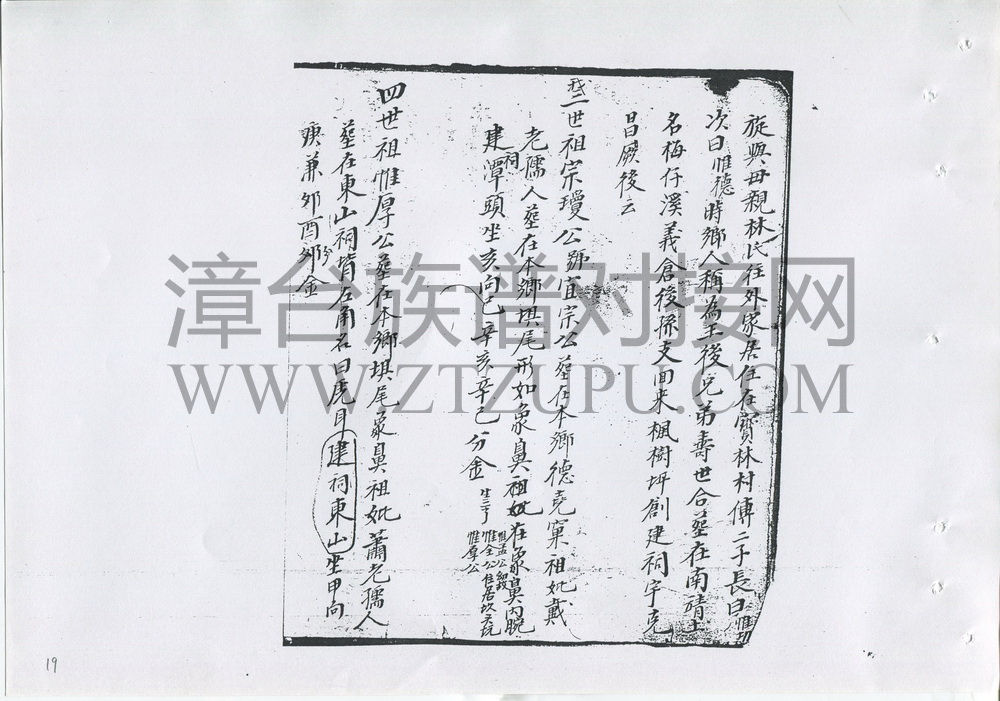 旋與母親林氏往外家居住在寶林村傳二子長曰惟
次曰惟德時鄉人稱為王後兄弟壽世合墓在南靖土
名梅仔溪義倉後孫支回来楓樹坪創建祠宇克
昌厥後云
三世祖宗瓊公號宜宗公墓在本鄉德堯窠祖妣戴
老孺人墓在本鄉堀尾形如象鼻祖妣在象鼻內腕
建祠潭頭坐亥向巳辛亥辛巳分金 生三子
惟公
惟全公住居坎天坑
惟厚公
四世祖惟厚公墓在本鄉堀尾象鼻祖妣蕭老孺人
墓在東山祠背左角名曰虎耳建祠東山坐甲向
庚兼卯酉分金
漳台族谱对接网
WWW.ZTZUPU.COM
19